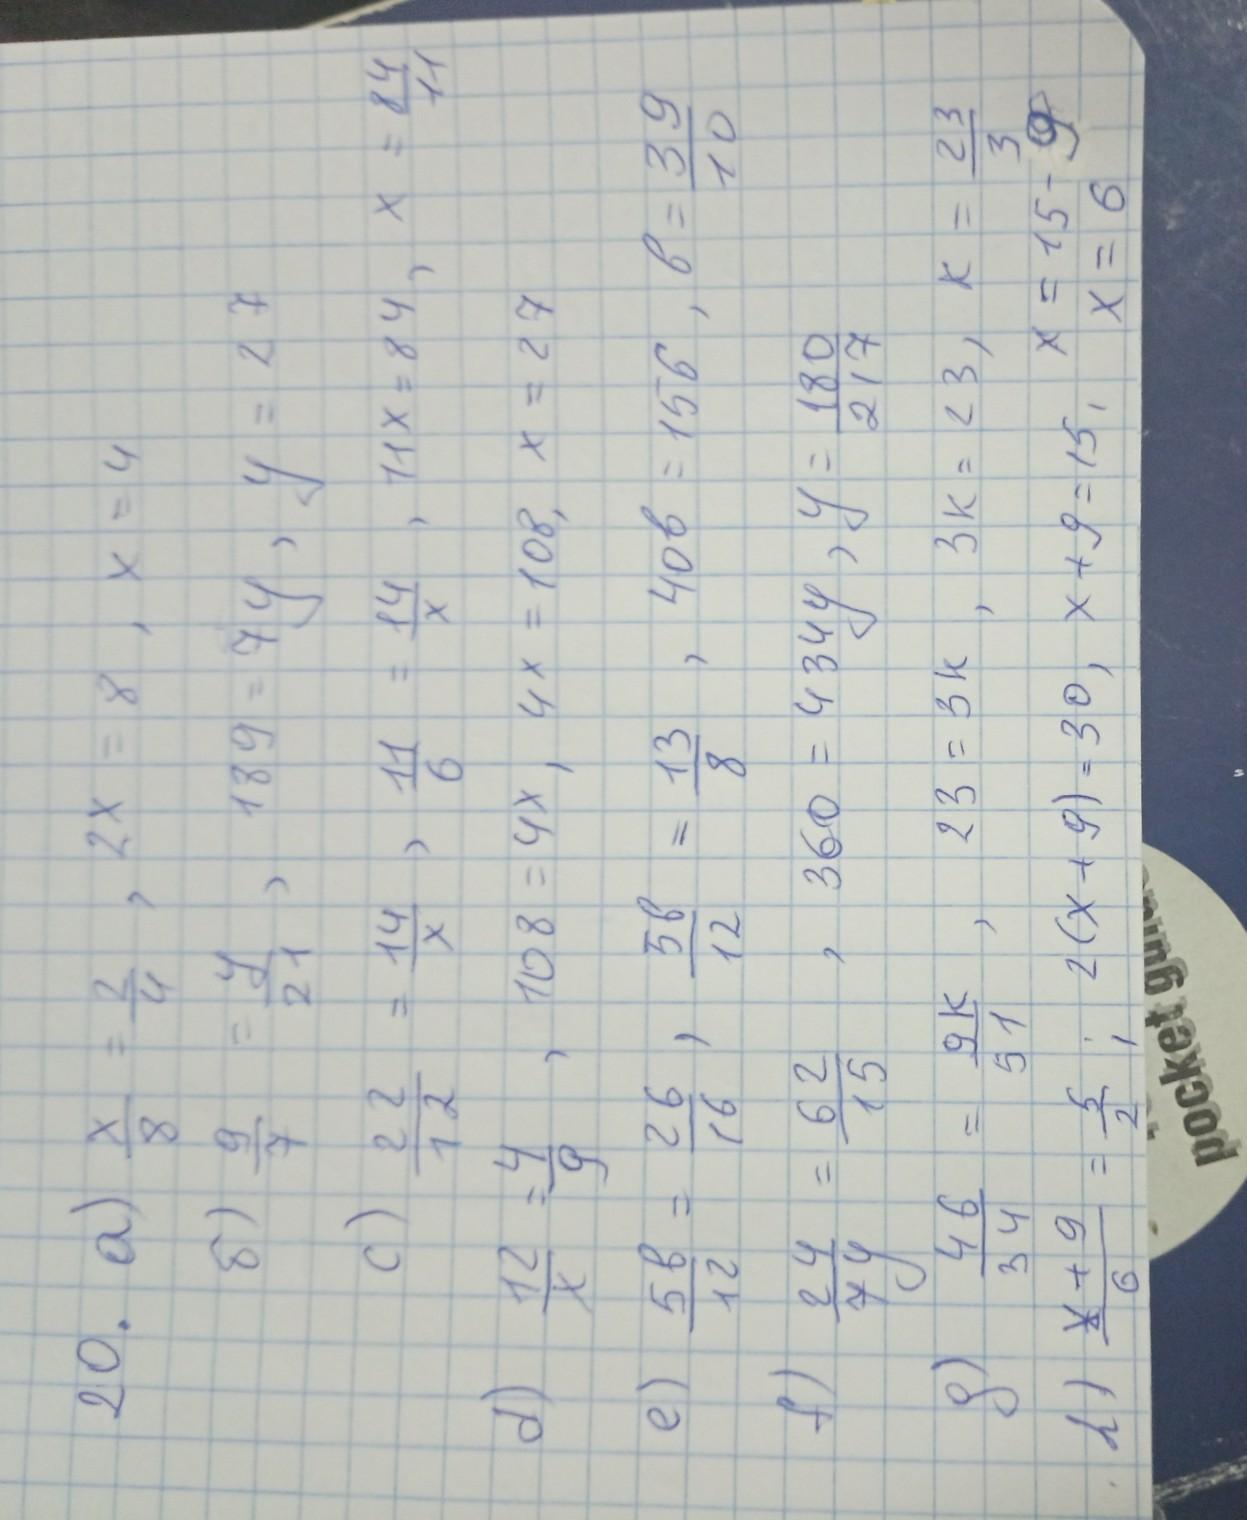 20. a) x/8 = 2/4, 2x = 8, x = 4
б) 9/7 = y/21, 189 = 7y, y = 27
c) 22/12 = 14/x, 11/6 = 14/x, 11x = 84, x = 84/11
d) 12/x = 4/9, 108 = 4x, 4x = 108, x = 27
e) 5в/12 = 26/16, 5в/12 = 13/8, 40в = 156, в = 39/10
f) 24/7y = 62/15, 360 = 434y, y = 180/217
g) 46/34 = 9k/51, 23 = 3k, 3k = 23, k = 23/3
h) x+9/6 = 5/2; 2(x+9) = 30, x+9 = 15, x = 15-9
x = 6
pocket guide